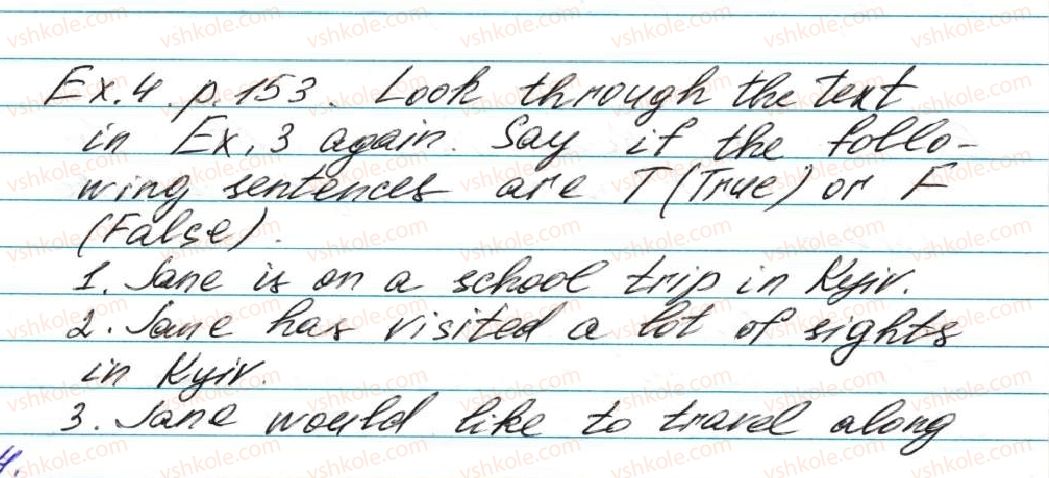 Ex. 4. p. 153. Look through the text
in Ex. 3 again. Say if the follo-
wing sentences are T (True) or F
(False).
1. Jane is on a school trip in Kyiv.
2. Jane has visited a lot of sights
in Kyiv.
3. Jane would like to travel along
4.